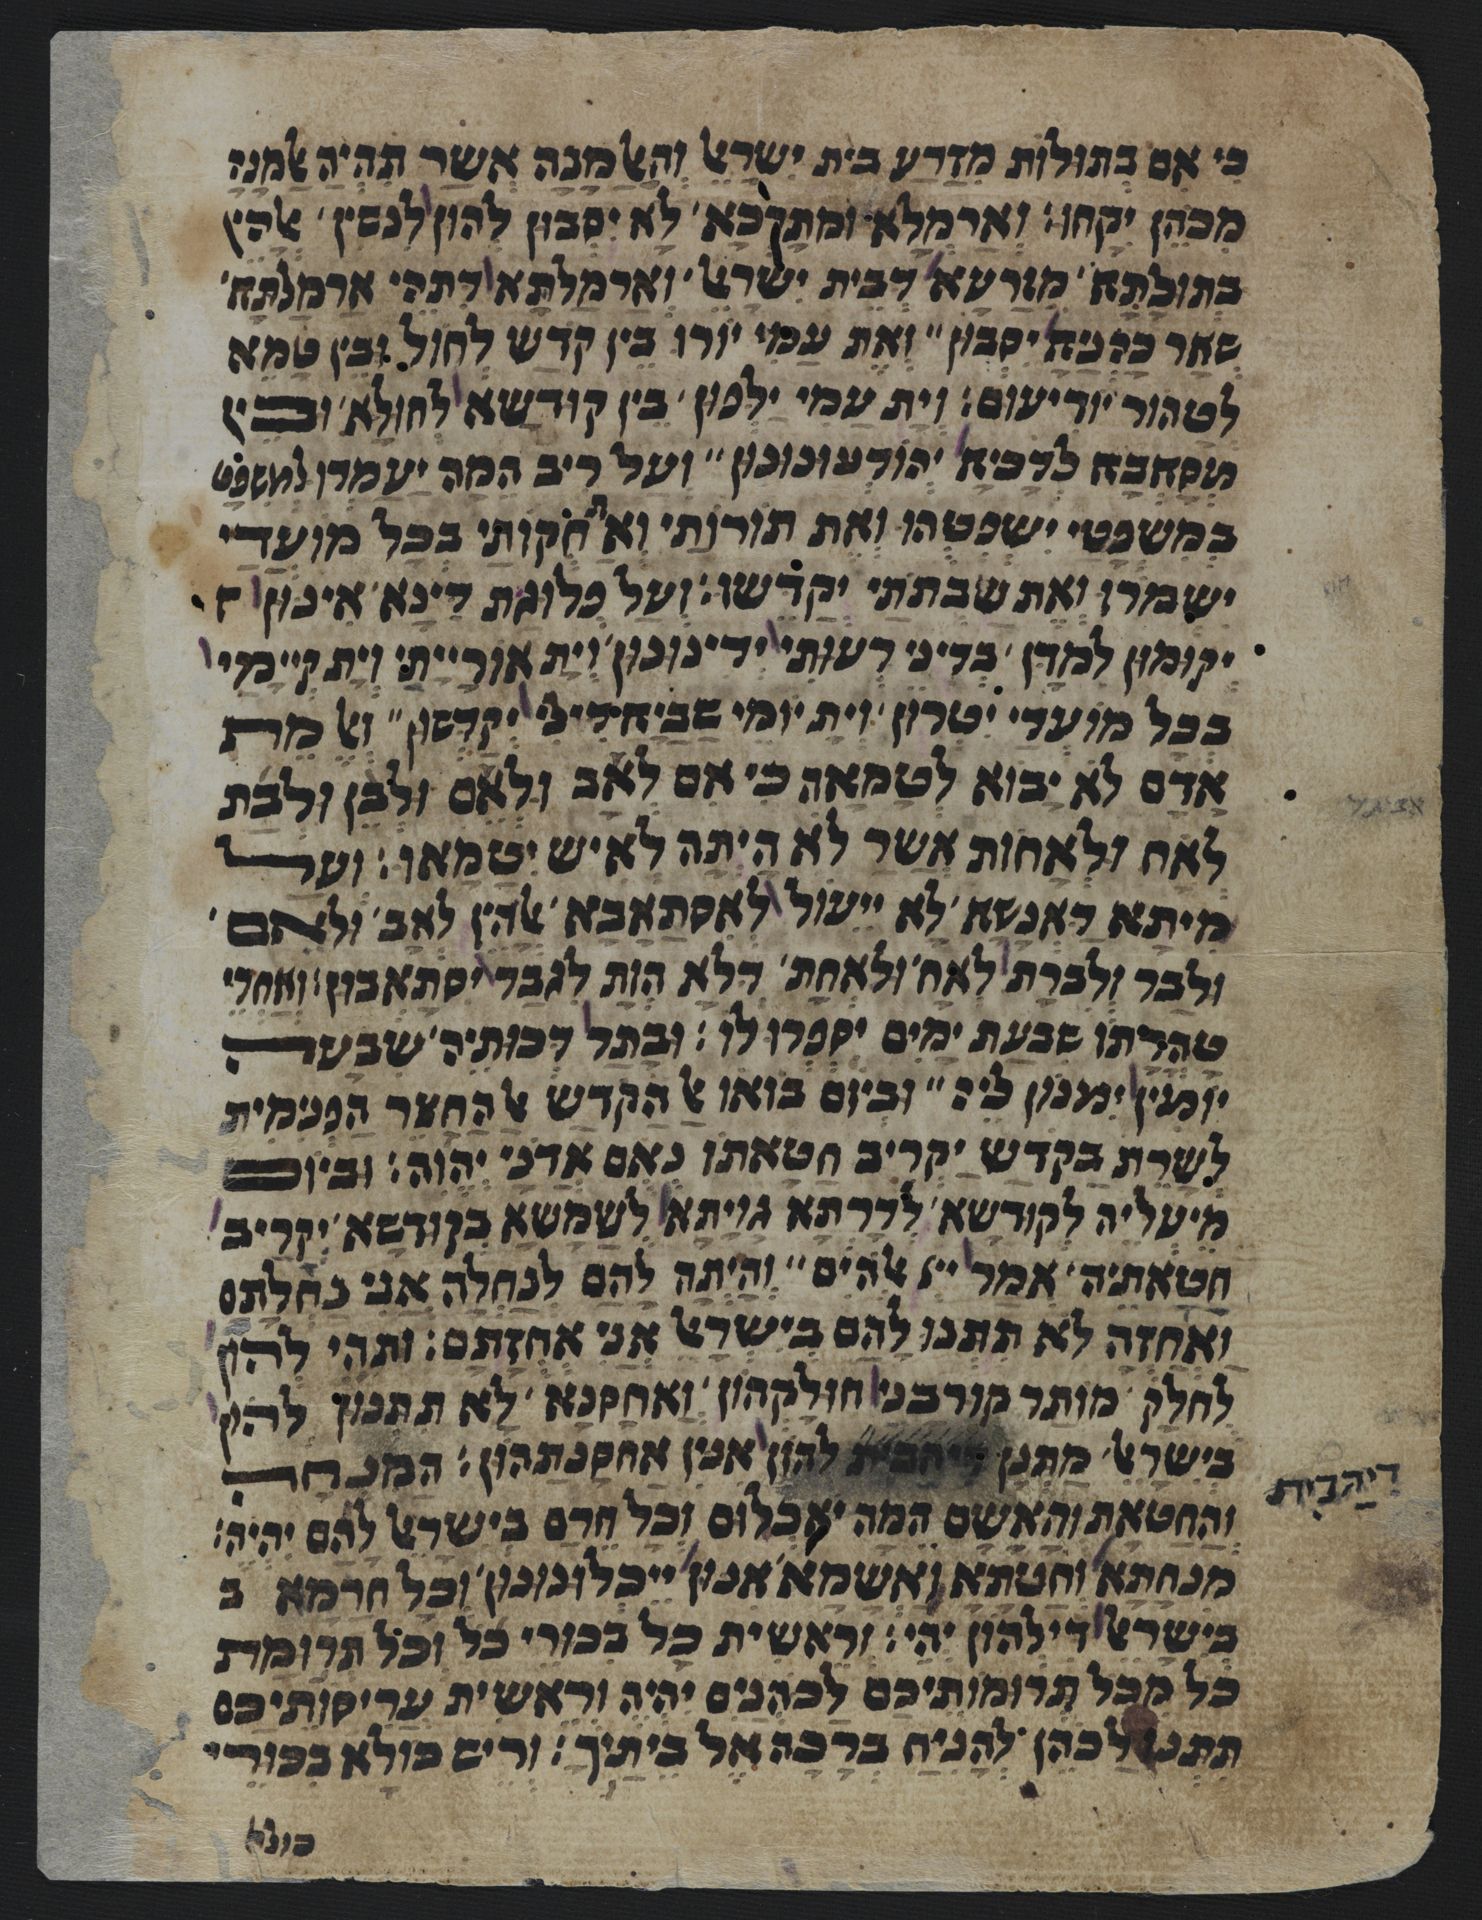 כִּי אִם בְּתוּלוֹת מִזֶרַע בֵּית יִשְׂרָאֵל וְהָאַלְמָנָה אֲשֶׁר תִּהְיֶה אַלְמָנָה
מִכֹּהֵן יִקָּחוּ׃ וְאַרמְלָא וּמתָרְכָא לָא יִסְבוּן לְהוֹן לִנשִׁין אֱלָהֵין
בְּתוּלָתָא מִזַּרעָא דְבֵית יִשׂרָאֵל וְאַרמַלתָּא דִתְהֵי אַרמַלתָּא
שְׁאָר כָּהֲנַיָּא יִסְבוּן׃ וְאֶת עַמִּי יוֹרוּ בֵּין קֹדֶשׁ לְחוֹל וּבֵין טָמֵא
לְטָהוֹר יוֹדִיעוּם׃ וְיָת עַמִּי יַלְפוּן בֵּין קוּדשָׁא לְחוּלָא וּבֵין
מְסָאֲבָא לְדָכיָא יְהוֹדְעוּנוּנוּן׃ וְעַל רִיב הֵמָּה יַעַמְדוּ לְמִשְׁפָּט
בְּמִשְׁפָּטַי יִשְׁפְּטֻהוּ וְאֶת תּוֹרֹתַי וְאֶת חֻקּוֹתַי בְּכָל מוֹעֲדַי
יִשְׁמֹרוּ וְאֶת שַׁבְּתֹתַי יְקַדֵּשׁוּ׃ וְעַל פְּלוּגַת דִּינָא אִינּוּן ז
יְקוּמוּן לְמִדָּן בְּדִינֵי רְעוּתִי יְדִינוּנוּן וְיָת אוֹרָיְיתִי וְיָת קְיָימַי
בְּכָל מוֹעֲדַי יִטְּרוּן וְיָת יוֹמֵי שַׁבַּיָּא דִילִי יְקַדְּשׁוּן׃ וְאֶל מֵת
אָדָם לֹא יָבוֹא לְטָמְאָה כִּי אִם לְאָב וּלְאֵם וּלְבֵן וּלְבַת
לְאָח וּלְאָחוֹת אֲשֶׁר לֹא הָיְתָה לְאִישׁ יִטַּמָּאוּ׃ וְעַל
מִיתָא דַאֲנָשָׁא לָא יֵיעוֹל לְאִסתַּאָבָא אֱלָהֵין לְאָב וּלאֵם
וּלבַר וְלִברַת לְאַח וּלאַחָת דְּלָא הֲוָת לִגבַר יִסתָּאֲבוּן׃ וְאַחֲרֵי
טָהֳרָתוֹ שִׁבְעַת יָמִים יִסְפְּרוּ לוֹ׃ וּבָתַר דְּכוּתֵיהּ שִׁבעָה
יוֹמִין יִמנוֹן לֵיהּ׃ וּבְיוֹם בֹּואוֹ אֶל הַקֹּדֶשׁ אֶל הֶחָצֵר הַפְּנִימִית
לְשָׁרֵת בַּקֹּדֶשׁ יַקְרִיב חַטָּאתוֹ נְאֻם אֲדֹנָי יְהֹוִה׃ וּבְיוֹם
מֵיעֲלֵיהּ לְקוּדשָׁא לְדָרְתָא גַוָּיתָא לְשַׁמָּשָׁא בְקוּדשָׁא יְקָרֵיב
חַטָּאתֵיהּ אֲמַר ייי אֱלֹהִים׃ וְהָיְתָה לָהֶם לְנַחֲלָה אֲנִי נַחֲלָתָם
וַאֲחֻזָּה לֹא תִתְּנוּ לָהֶם בְּיִשְׂרָאֵל אֲנִי אֲחֻזָּתָם׃ וּתהֵי לְהוֹן
לְחֻלָק מוֹתַר קוּרבָּנַי חוּלָקְהוֹן וְאַחסָנָא לָא תִתְּנוּן לְהוֹן
בְּיִשׂרָאֵל מַתְּנָן דִּיהַבִית לְהוֹן אִנִּין אַחסָנַתהוֹן׃ הַמִּנְחָה
דִּיהַבִית
וְהַחַטָּאת וְהָאָשָׁם הֵמָּה יֹאכְלוּם וְכָל חֵרֶם בְּיִשְׂרָאֵל לָהֶם יִהְיֶה׃
מִנחָתָא וְחַטָּתָא וַאֲשָׁמָא אִנּוּן יֵיכְלוּנוּנוּן וְכָל חֶרמָא ב
בְּיִשׂרָאֵל דִּילְהוֹן יְהֵי׃ וְרֵאשִׁית כָּל בִּכּוּרֵי כֹל וְכָל תְּרוּמַת
כֹּל מִכֹּל תְּרוּמוֹתֵיכֶם לַכֹּהֲנִים יִהְיֶה וְרֵאשִׁית עֲרִיסוֹתֵיכֶם
תִּתְּנוּ לַכֹּהֵן לְהָנִיחַ בְּרָכָה אֶל בֵּיתֶיךָ׃ וְרֵישׁ כּוֹלָא בִּכּוּרֵי
כולא